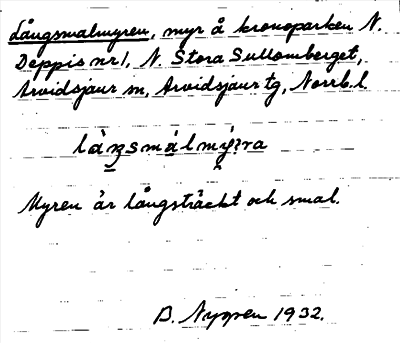 Långsmalmyren, myr å kronoparken N.
Deppis nr 1, N. Stora Sullomberget,
Arvidsjaur sn, Arvidsjaur tg, Norrb. l.
Myren är långsträckt och smal.
B. Nygren 1932.